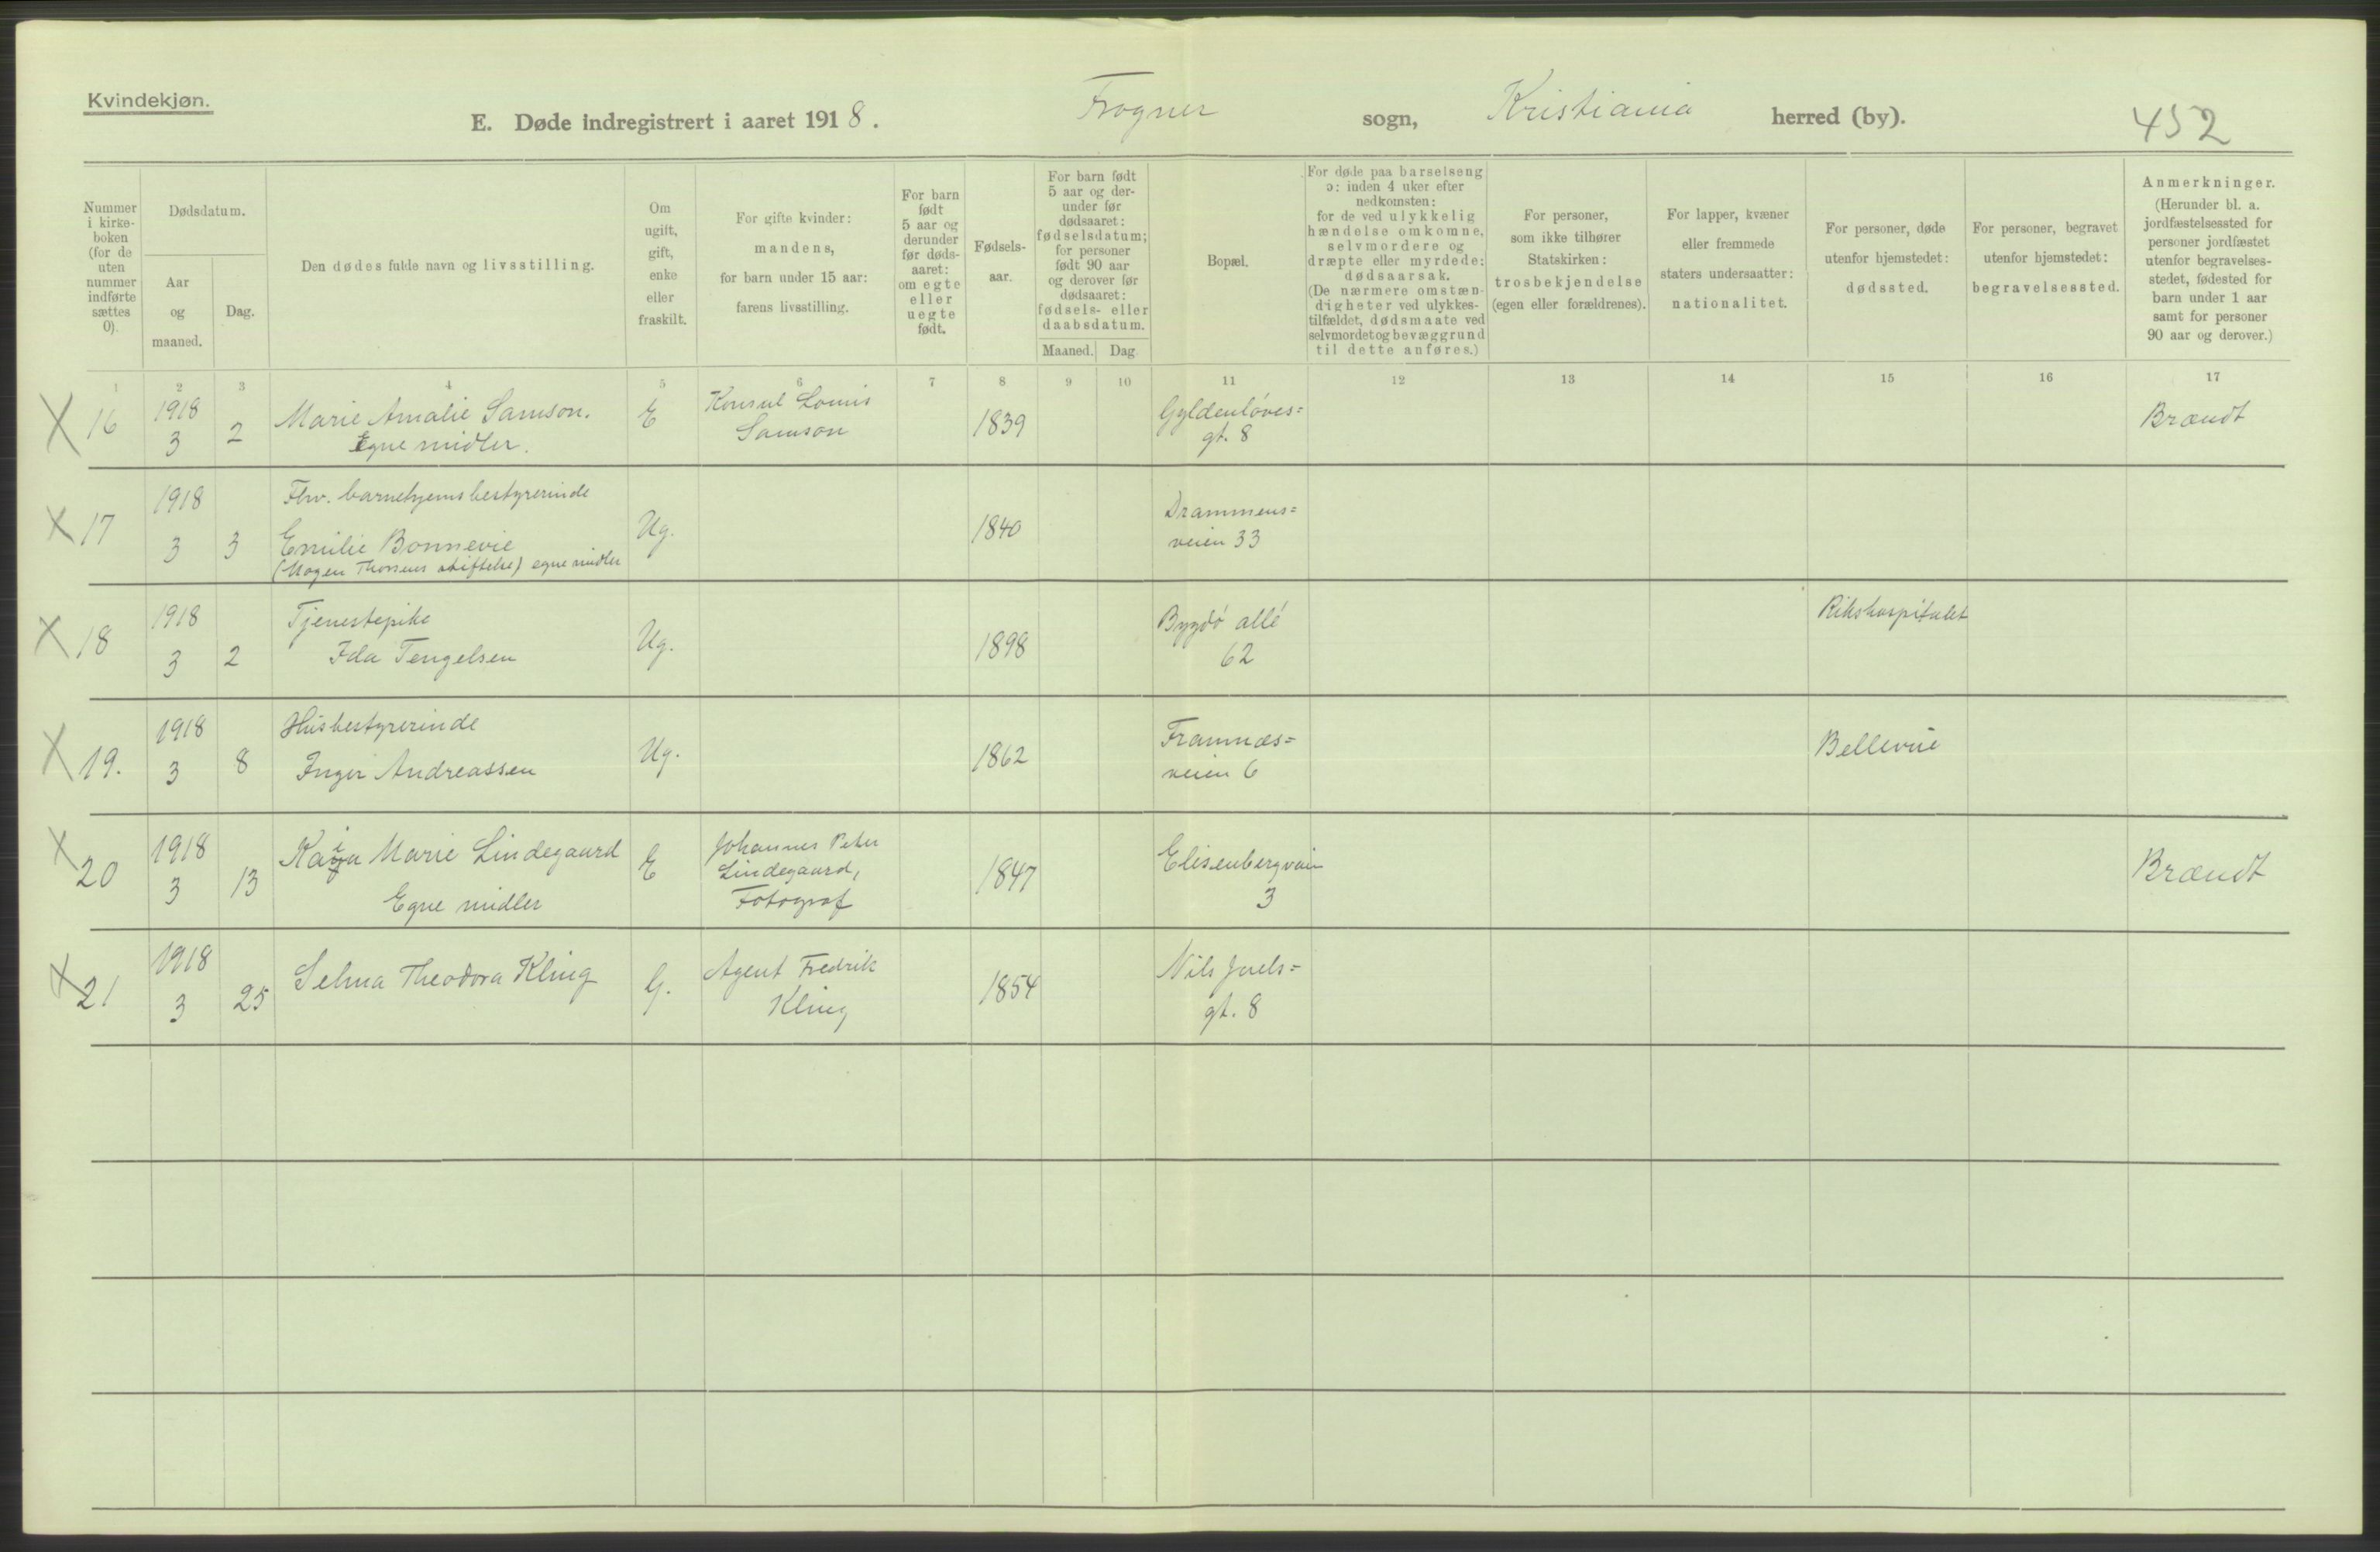 Kvindekjøn.
E. Døde indregistrert i aaret 1918. Frogner sogn, Kristiania herred (by). 452
Nummer
i kirke-
boken
(for de
uten
nummer
indførte
sættes
0).
Dødsdatum.
Aar
og
maaned.
Dag.
Den dødes fulde navn og livsstilling.
Om
ugift,
gift,
enke
eller
fraskilt.
For gifte kvinder:
mandens,
for barn under 15 aar:
farens livsstilling.
For barn
født
5 aar og
derunder
før døds-
aaret:
om egte
eller
uegte
født.
Fødsels-
aar.
For barn født
5 aar og der-
under før
dødsaaret:
fødselsdatum;
for personer
født 90 aar
og derover før
dødsaaret:
fødsels- eller
daabsdatum.
Maaned. Dag
Bopæl.
For døde paa barselseng
ɔ: inden 4 uker efter
nedkomsten:
for de ved ulykkelig
hændelse omkomne,
selvmordere og
dræpte eller myrdede:
dødsaarsak.
(De nærmere omstæn-
digheter ved ulykkes-
tilfældet, dødsmaate ved
selvmordet og bevæggrund
til dette anføres.)
For personer,
som ikke tilhører
Statskirken:
trosbekjendelse
(egen eller forældrenes).
For lapper, kvæner
eller fremmede
staters undersaatter:
nationalitet.
For personer, døde
utenfor hjemstedet:
dødssted.
For personer, begravet
utenfor hjemstedet:
begravelsessted.
Anmerkninger.
(Herunder bl. a.
jordfæstelsessted for
personer jordfæstet
utenfor begravelses-
stedet, fødested for
barn under 1 aar
samt for personer
90 aar og derover.)
1 2 3 4 5 6 7 8 9 10 11 12 13 14 15 16 17
X 16
1918
3 2
Marie Amalie Samson.
Egne midler.
E
Konsul Louis
Samson
1839
Gyldenløves=
gt. 8
Brændt
X 17
1918
3 3
Fhv. barnehjemsbestyrerinde
Emilie Bonnevie
(Mogen Thorsens stiftelse) egne midler
Ug.
1840
Drammens=
veien 33
X 18
1918
3 2
Tjenestepike
Ida Tengelsen
Ug.
1898
Bygdø allé
62
Rikshospitalet
X 19.
1918
3 8
Husbestyrerinde
Inger Andreassen
Ug.
1862
Framnæs=
veien 6
Bellevue
X 20
1918
3 13
Kaia Marie Lindegaard
Egne midler
E
Johannes Peter
Lindegaard,
Fotograf
1847
Elisenbergvein
3
Brændt
X 21
1918
3 25
Selma Theodora Kling
G.
Agent Fredrik
Kling
1854
Nils Juels=
gt. 8